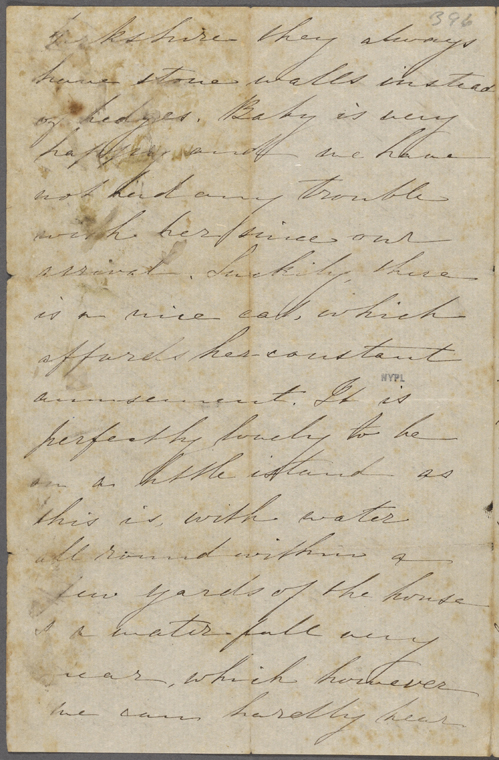 396
Yorkshire they always
have stone walls instead
of hedges. Baby is very
happy and we have
not had any trouble
with her since our
arrival. Luckily, there
is a nice cat, which
affords her constant
NYPL
amusement. It is
perfectly lovely to be
on a little island as
this is, with water
all round within a
few yards of the house
is a waterfall very
near, which however
we can hardly hear